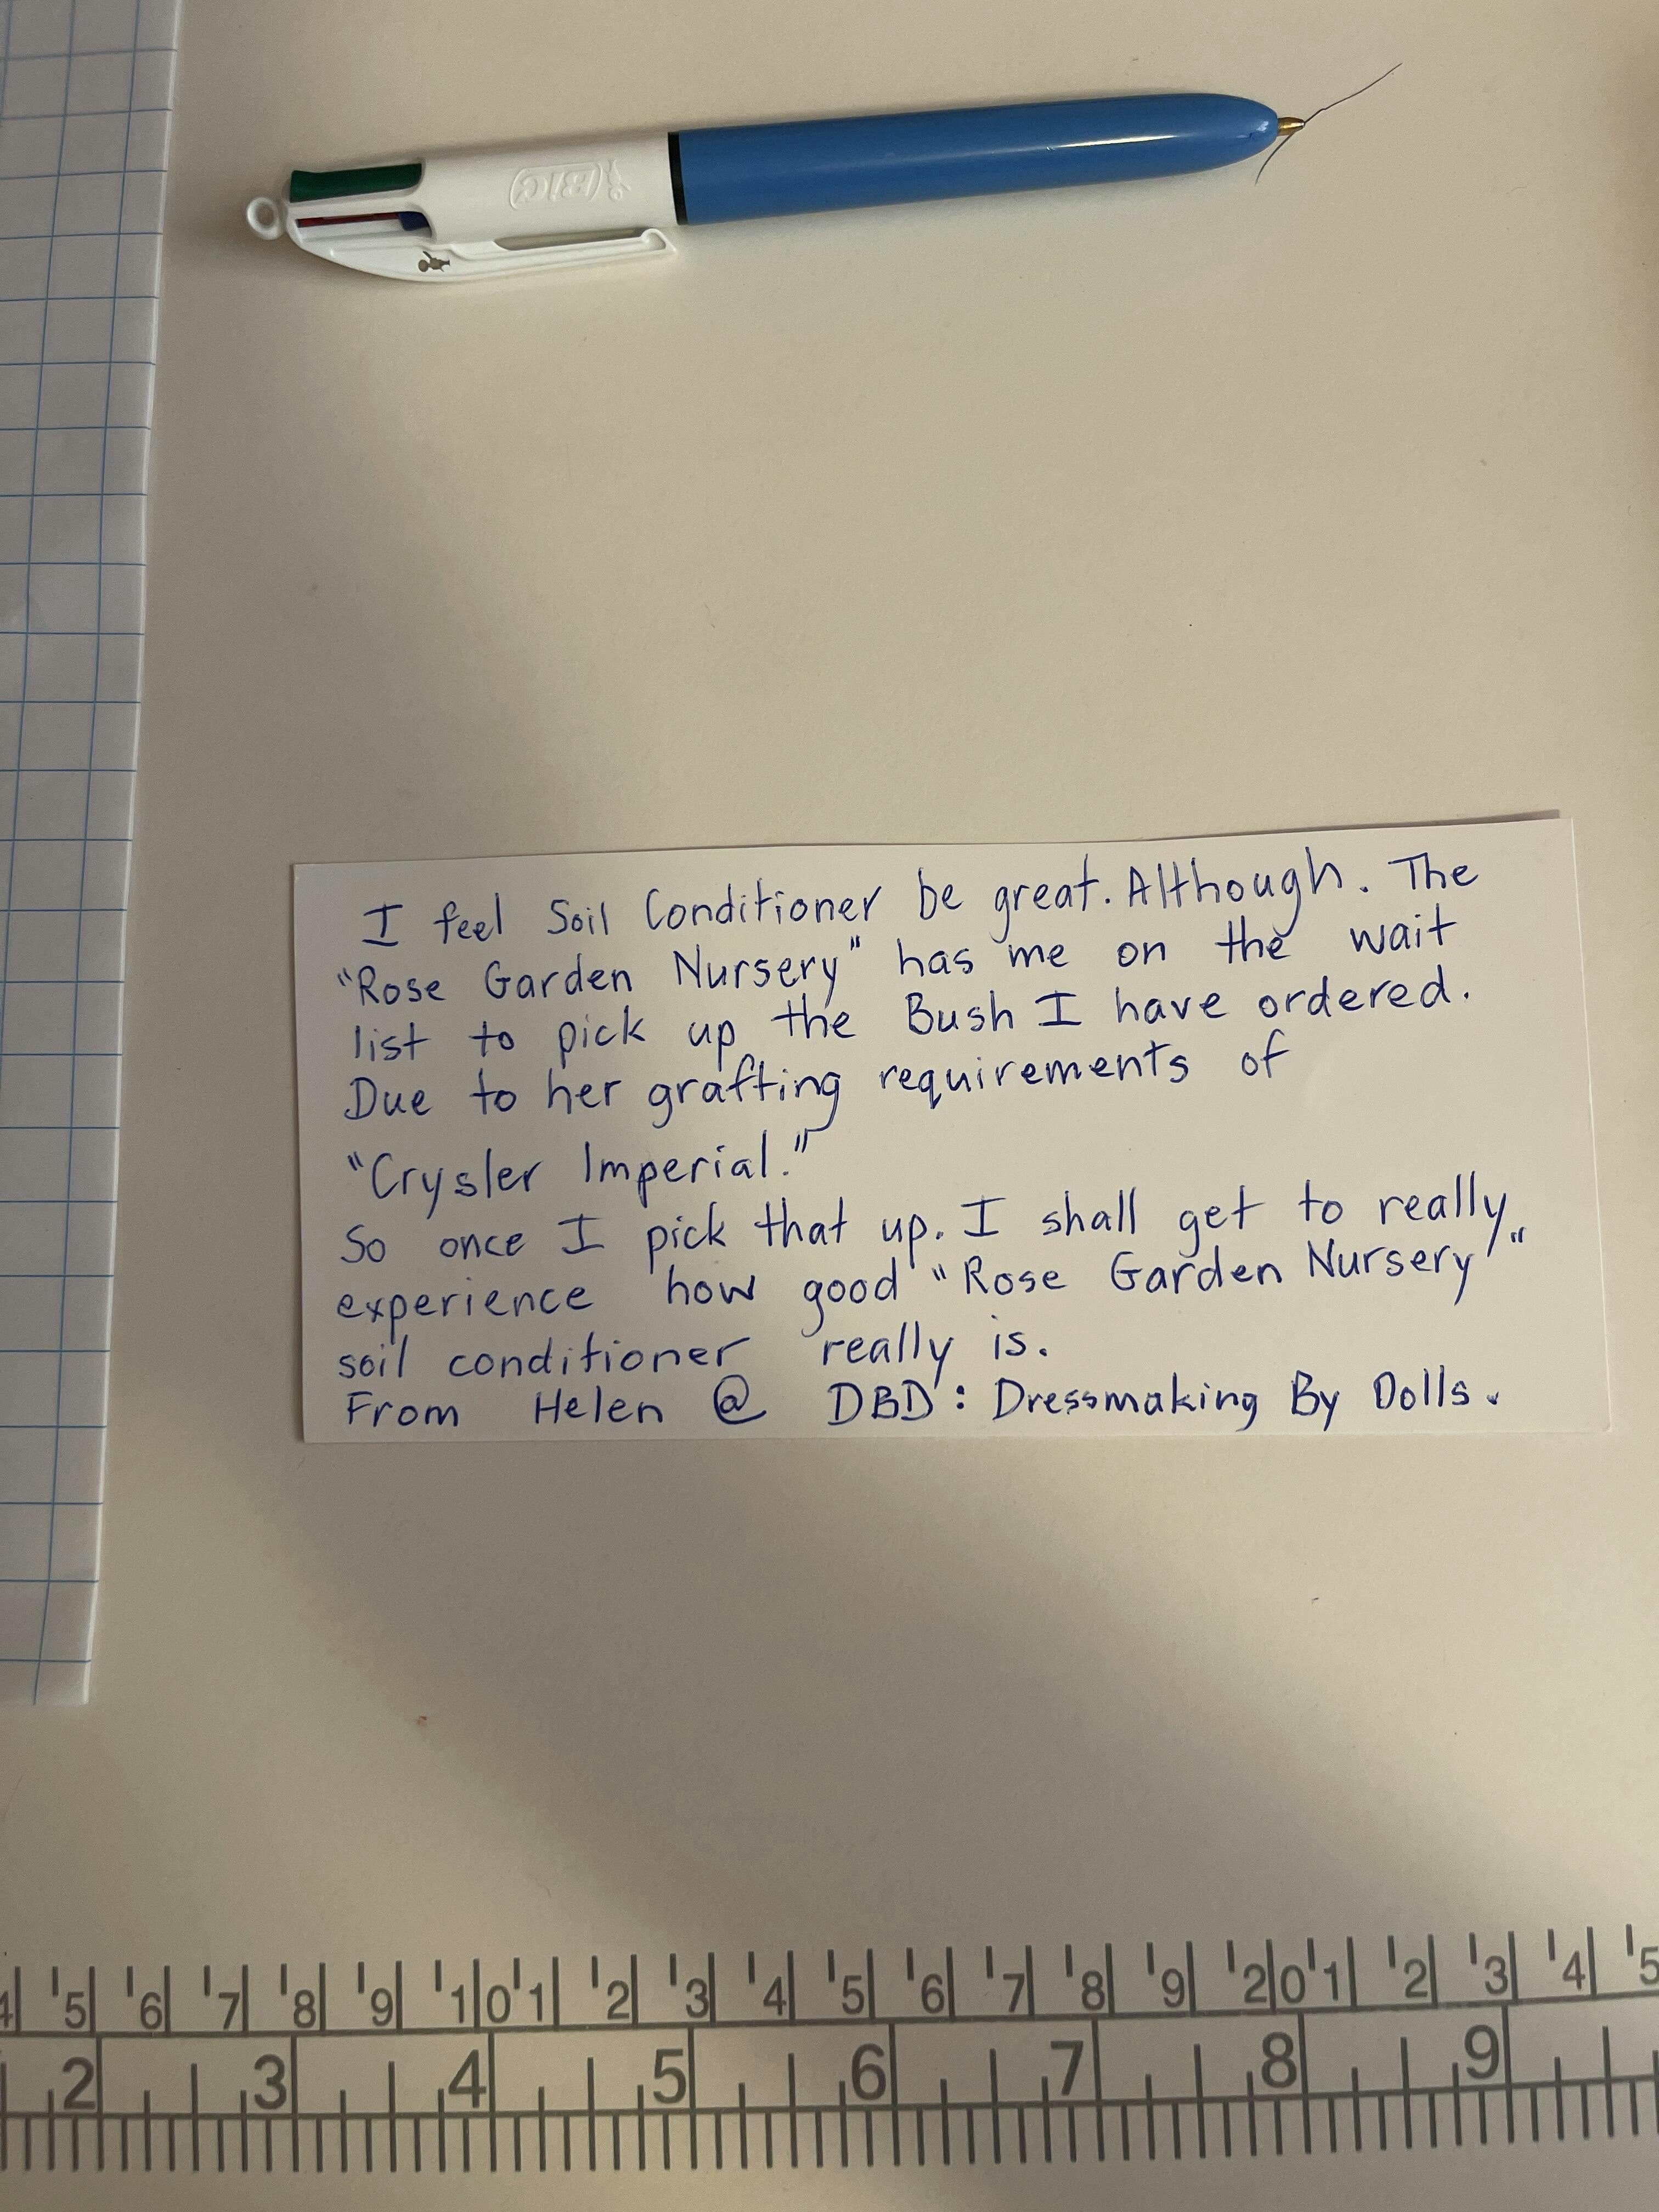 BIC
I feel Soil Conditioner be great. Although. The
"Rose Garden Nursery" has me on the wait
list to pick up the Bush I have ordered.
Due to her grafting requirements of
"Crysler Imperial."
So once I pick that up. I shall get to really
experience how good "Rose Garden Nursery"
soil conditioner really is.
From Helen @ DBD: Dressmaking By Dolls.
4 5 6 7 8 9 10 1 2 3 4 5 6 7 8 9 20 1 2 3 4 5
2 3 4 5 6 7 8 9